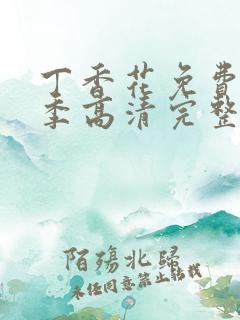 丁香花免费
季高清完整
陌殇北归
未经同意禁止转载